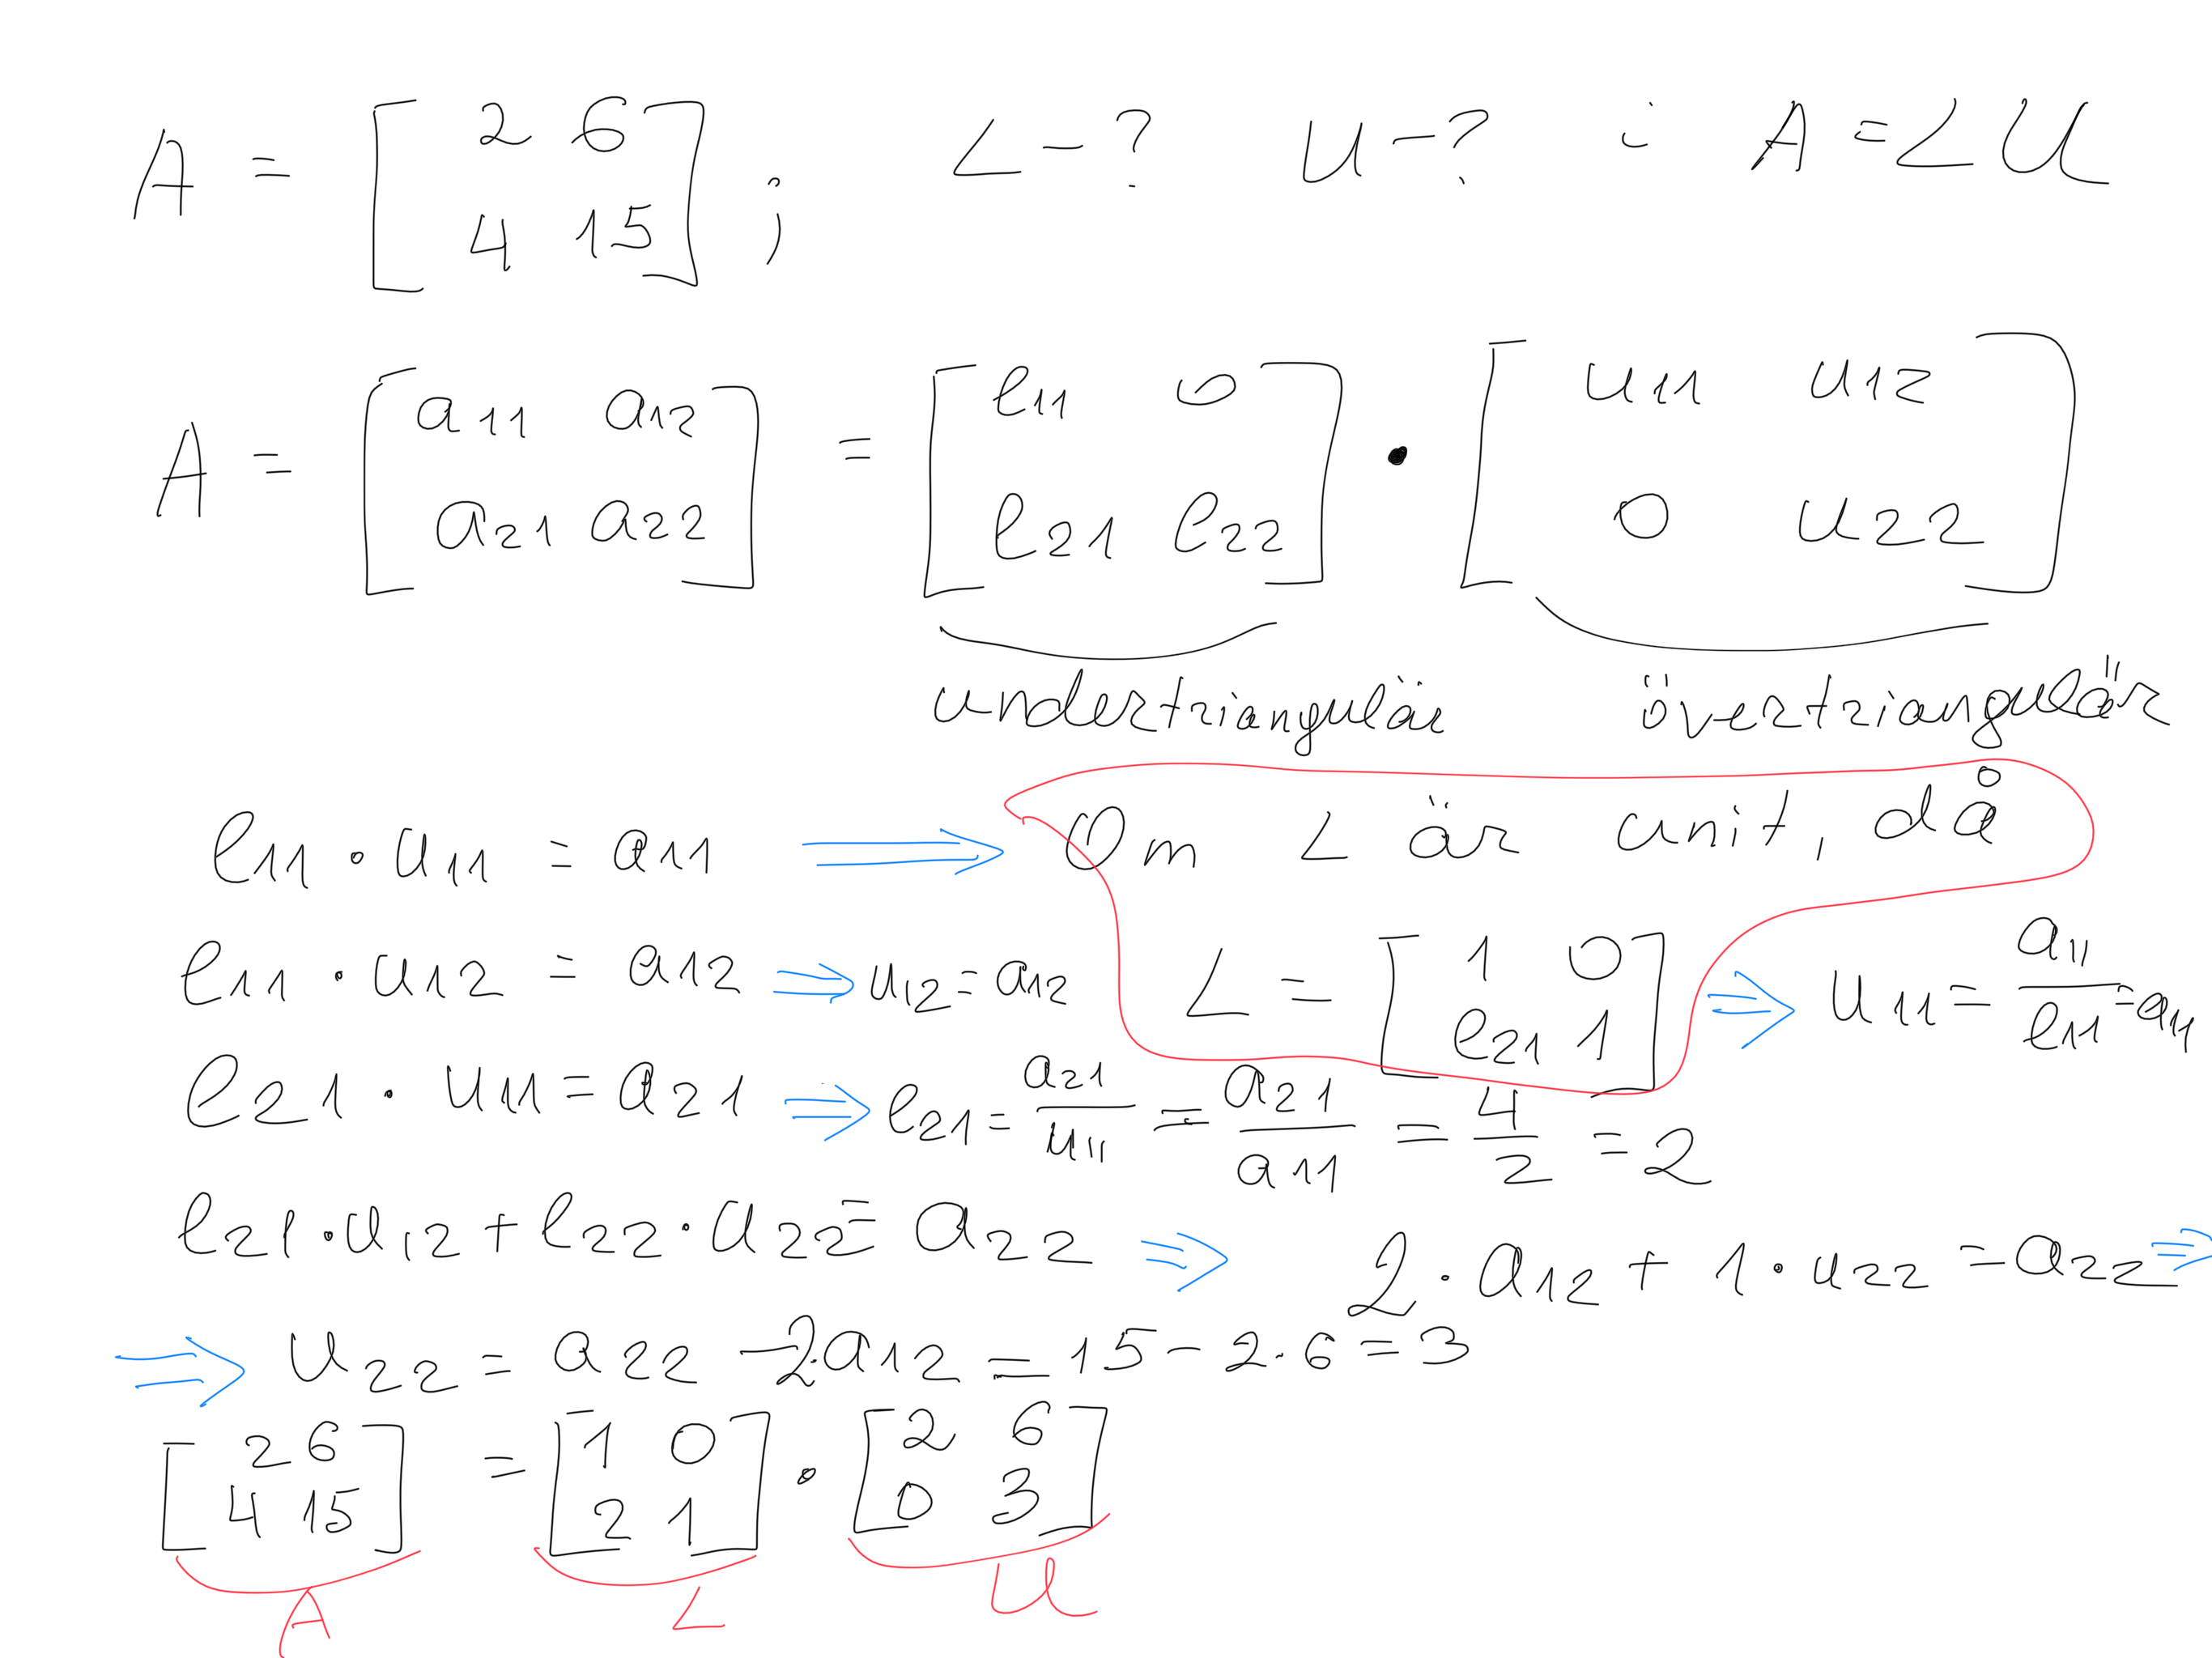 A = [ 2 6 ; 4 15 ] ; L - ? U - ? i A = L U
A = [ a11 a12 ; a21 a22 ] = [ l11 0 ; l21 l22 ] • [ u11 u12 ; 0 u22 ]
undertriangulär övertriangulär
l11 · u11 = a11 ⇒ Om L är unit, då
l11 · u12 = a12 ⇒ u12 = a12 L = [ 1 0 ; l21 1 ] ⇒ u11 = a11 / l11 = a11
l21 · u11 = a21 ⇒ l21 = a21 / u11 = a21 / a11 = 4 / 2 = 2
l21 · u12 + l22 · u22 = a22 ⇒ 2 · a12 + 1 · u22 = a22 ⇒
⇒ u22 = a22 - 2 · a12 = 15 - 2 · 6 = 3
[ 2 6 ; 4 15 ] = [ 1 0 ; 2 1 ] · [ 2 6 ; 0 3 ]
A L U